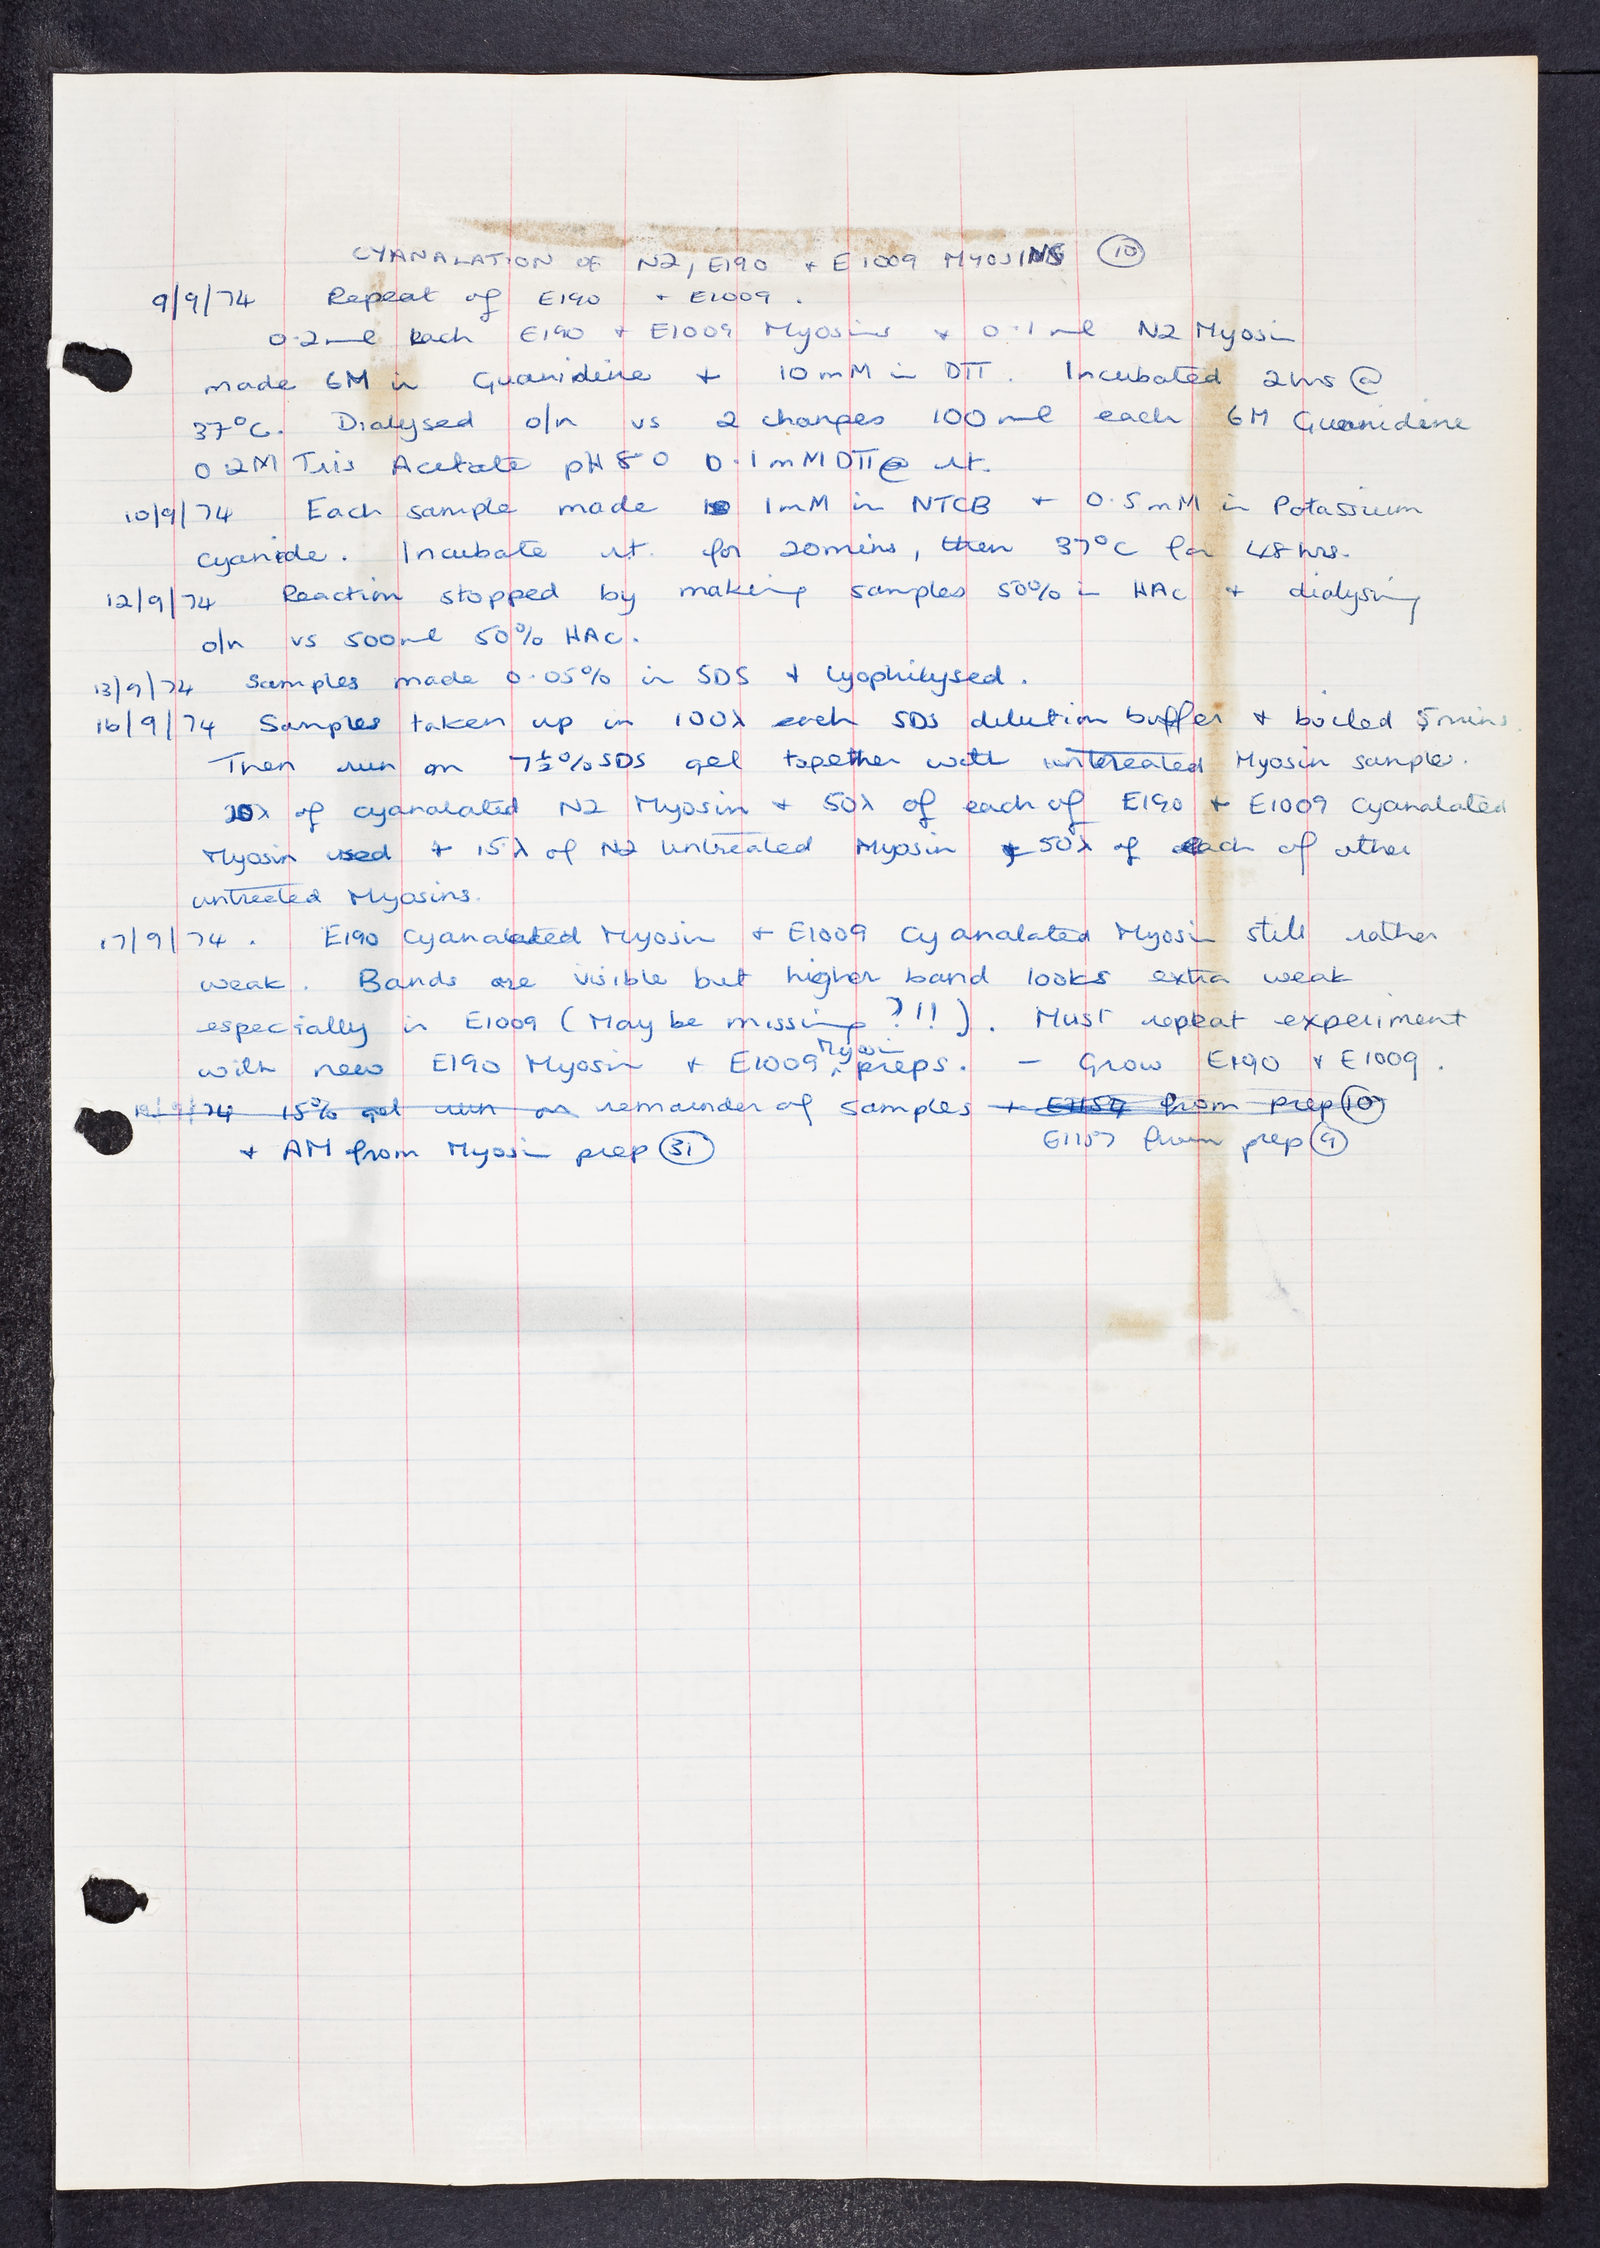 CYANALATION OF N2, E190 + E1009 MYOSINS (10)
9/9/74 Repeat of E190 + E1009.
0.2ml Each E190 + E1009 Myosins + 0.1ml N2 Myosin
made 6M in Guanidine + 10mM in DTT. Incubated 2hrs @
37°C. Dialysed o/n vs 2 changes 100ml each 6M Guanidine
0.2M Tris Acetate pH 8.0 0.1mM DTT @ rt.
10/9/74 Each sample made 1mM in NTCB + 0.5mM in Potassium
Cyanide. Incubate rt. for 20mins, then 37°C for 48hrs.
12/9/74 Reaction stopped by making samples 50% in HAc + dialysing
o/n vs 500ml 50% HAc.
13/9/74 Samples made 0.05% in SDS + lyophilysed.
16/9/74 Samples taken up in 100λ each SDS dilution buffer + boiled 5mins.
Then run on 7½% SDS gel together with untreated Myosin samples.
20λ of cyanalated N2 Myosin + 50λ of each of E190 + E1009 Cyanalated
Myosin used + 15λ of N2 untreated Myosin + 50λ of each of other
untreated Myosins.
17/9/74. E190 Cyanalated Myosin + E1009 Cyanalated Myosin still rather
weak. Bands are visible but higher band looks extra weak
especially in E1009 (May be missing?!!). Must repeat experiment
with new E190 Myosin + E1009 Myosin preps. - Grow E190 + E1009.
15% gel run on remainder of samples + E1157 from prep (10)
E1157 from prep (9)
+ AM from Myosin prep (31)